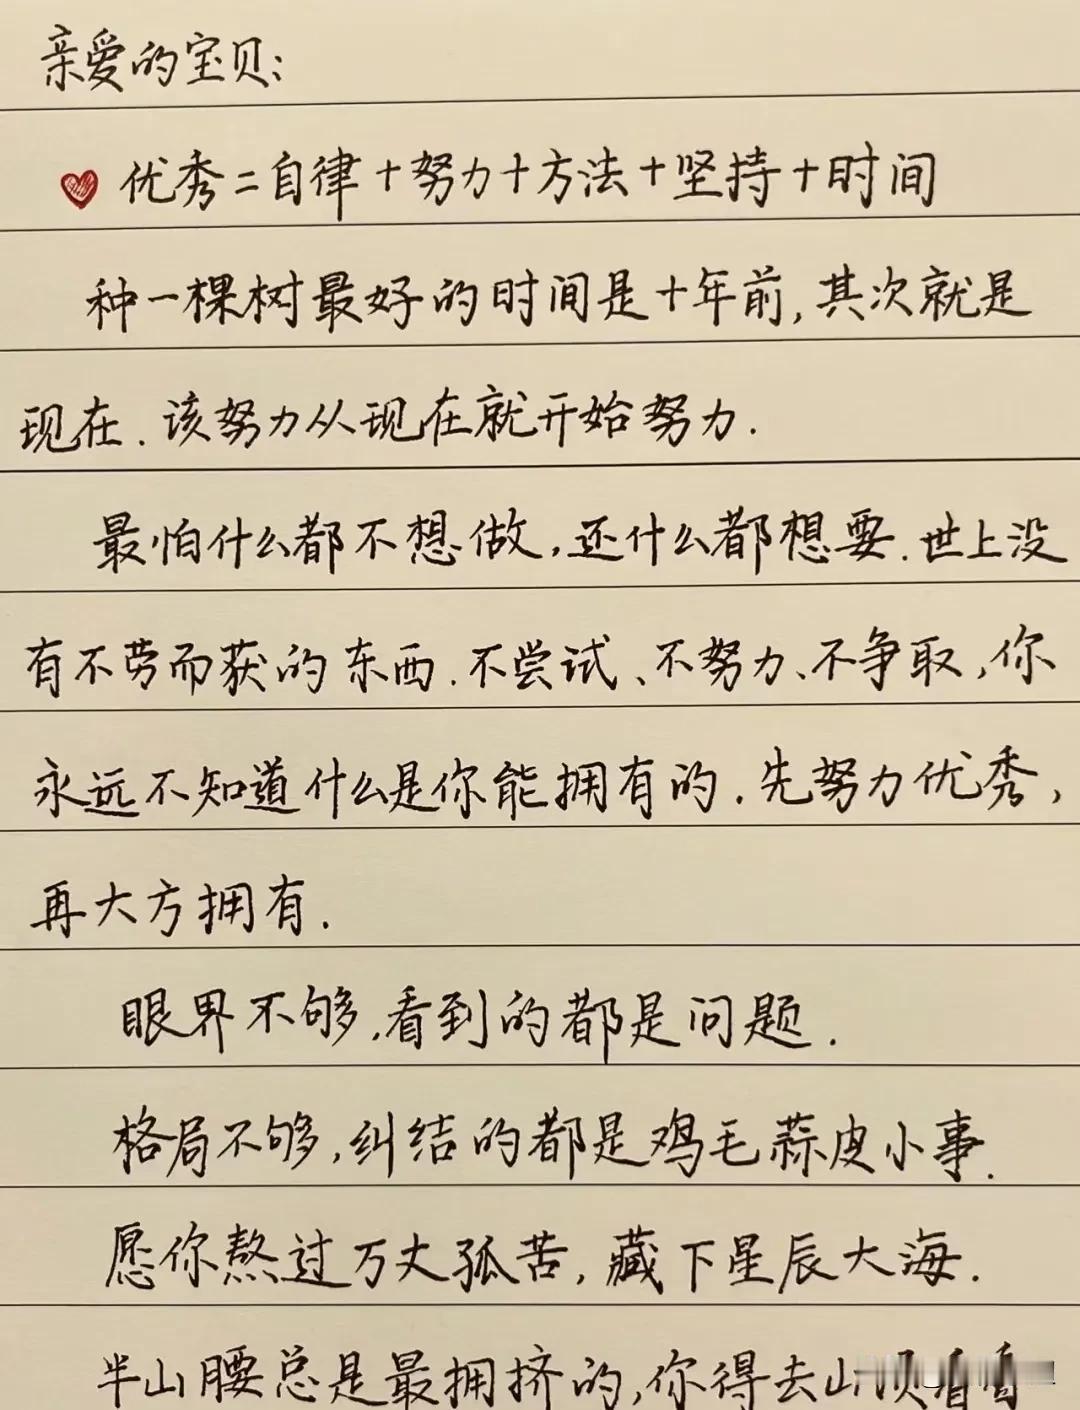 亲爱的宝贝:
优秀=自律+努力+方法+坚持+时间
种一棵树最好的时间是十年前,其次就是
现在.该努力从现在就开始努力.
最怕什么都不想做,还什么都想要.世上没
有不劳而获的东西.不尝试、不努力、不争取,你
永远不知道什么是你能拥有的.先努力优秀,
再大方拥有.
眼界不够,看到的都是问题.
格局不够,纠结的都是鸡毛蒜皮小事.
愿你熬过万丈孤苦,藏下星辰大海.
半山腰总是最拥挤的,你得去山顶看看